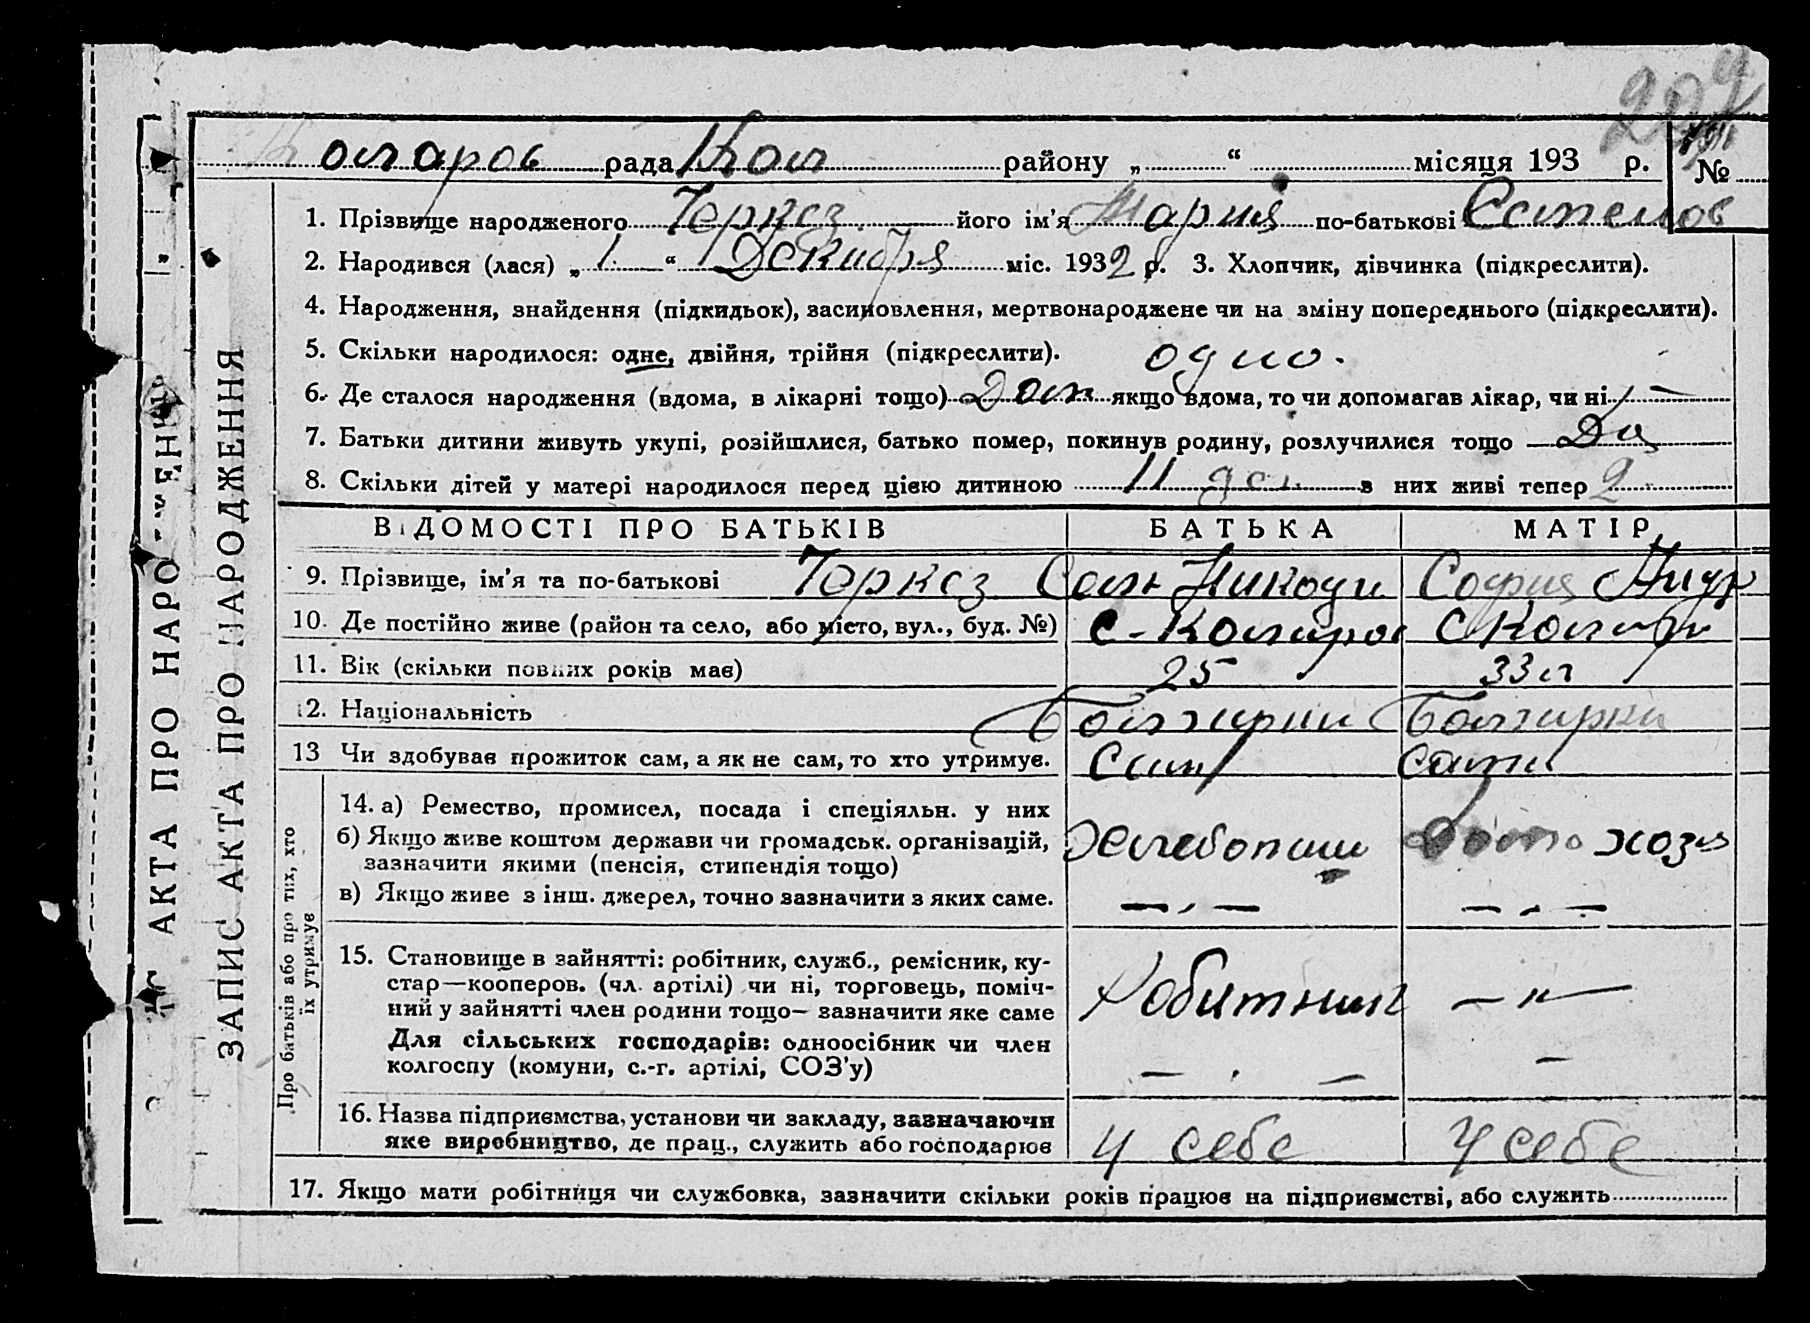 Коларов рада Кол району „ “ місяця 193 р. №
1. Прізвище народженого Теркез його ім'я Мария по-батькові
2. Народився (лася) „1“ Декабря міс. 1932 р. 3. Хлопчик, дівчинка (підкреслити).
4. Народження, знайдення (підкидьок), засиновлення, мертвонароджене чи на зміну попереднього (підкреслити).
5. Скільки народилося: одне, двійня, трійня (підкреслити). одно.
6. Де сталося народження (вдома, в лікарні тощо) Дом якщо вдома, то чи допомагав лікар, чи ні –
7. Батьки дитини живуть укупі, розійшлися, батько помер, покинув родину, розлучилися тощо – Да
8. Скільки дітей у матері народилося перед цією дитиною 11 з них живі тепер 2
ВІДОМОСТІ ПРО БАТЬКІВ БАТЬКА МАТІР
9. Прізвище, ім'я та по-батькові Теркез Никоди София
10. Де постійно живе (район та село, або місто, вул., буд. №) с. Коларов с Колар
11. Вік (скільки повних років має) 25 33
12. Національність Болгарин Болгарка
13 Чи здобуває прожиток сам, а як не сам, то хто утримує. Сам Сама
14. а) Ремество, промисел, посада і спеціяльн. у них
б) Якщо живе коштом держави чи громадськ. організацій, Хлебопаш хозя
зазначити якими (пенсія, стипендія тощо)
в) Якщо живе з інш. джерел, точно зазначити з яких саме. — . — — . —
15. Становище в зайнятті: робітник, служб., ремісник, ку-
стар—кооперов. (чл. артілі) чи ні, торговець, поміч- Робитник — „ —
ний у зайнятті член родини тощо— зазначити яке саме
Для сільських господарів: одноосібник чи член
колгоспу (комуни, с.-г. артілі, СОЗ'у) — . — —
16. Назва підприємства, установи чи закладу, зазначаючи
яке виробництво, де прац., служить або господарює У себе У себе
17. Якщо мати робітниця чи службовка, зазначити скільки років працює на підприємстві, або служить
Про батьків або про тих, хто
їх утримує
ЗАПИС АКТА ПРО НАРОДЖЕННЯ
АКТА ПРО